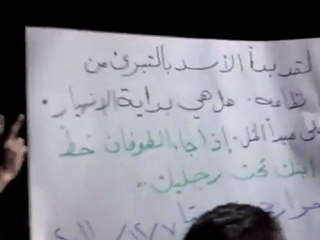 لقد بدأ الأسد بالتبرئ من
نظامه. هل هي بداية الانهيار.
على مبدأ المثل: إذا جاء الطوفان حط
ابنك تحت رجليك..